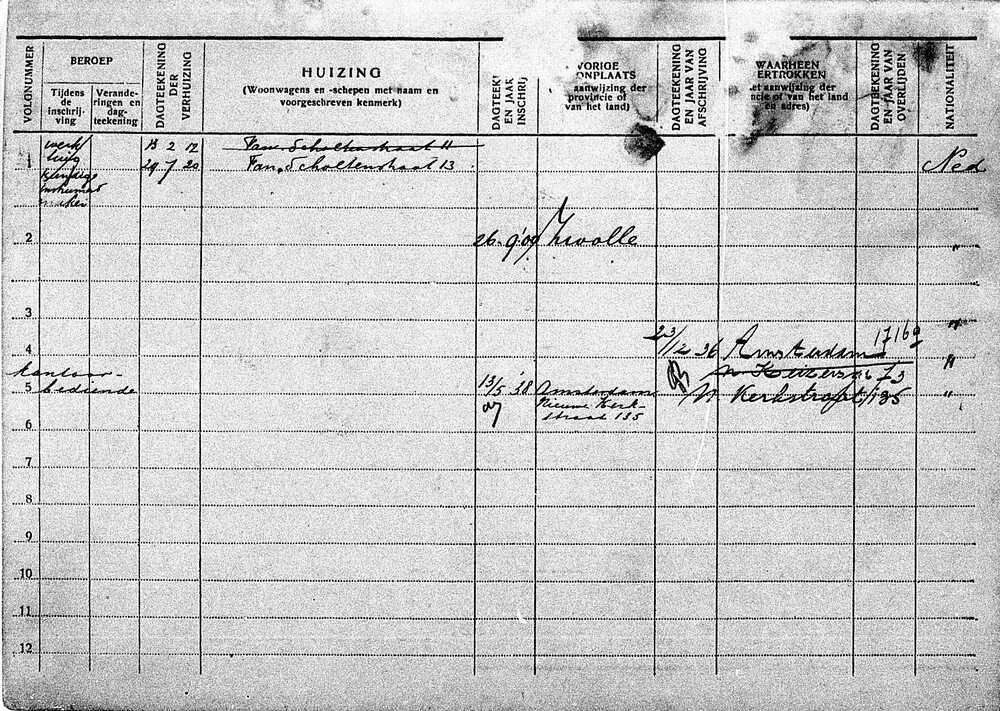 VOLGNUMMER
BEROEP
Tijdens de inschrijving
Veranderingen en dagteekening
DAGTEEKENING DER VERHUIZING
HUIZING
(Woonwagens en -schepen met naam en
voorgeschreven kenmerk)
DAGTEEK
EN JAAR
INSCHRIJ
VORIGE
ONPLAATS
aanwijzing der
provincie of
van het land)
DAGTEEKENING
EN JAAR VAN
AFSCHRIJVING
WAARHEEN
ERTROKKEN
et aanwijzing der
ncie of van het land
en adres)
DAGTEEKENING
EN JAAR VAN
OVERLIJDEN
NATIONALITEIT
werk
tuig
kundige
instrument
maker
2 12
Fan. Scholtenstraat 11
1 29 7 20 Fan. Scholtenstraat 13 Ned
2 26-9'09 Zwolle "
3 "
4 23/12 36 Amsterdam 17169 "
kantoor-
5 bediende 13/5 '38 Amsterdam N Kerkstraat 135 "
Nieuwe Kerk-
straat 135
6
7
8
9
10
11
12